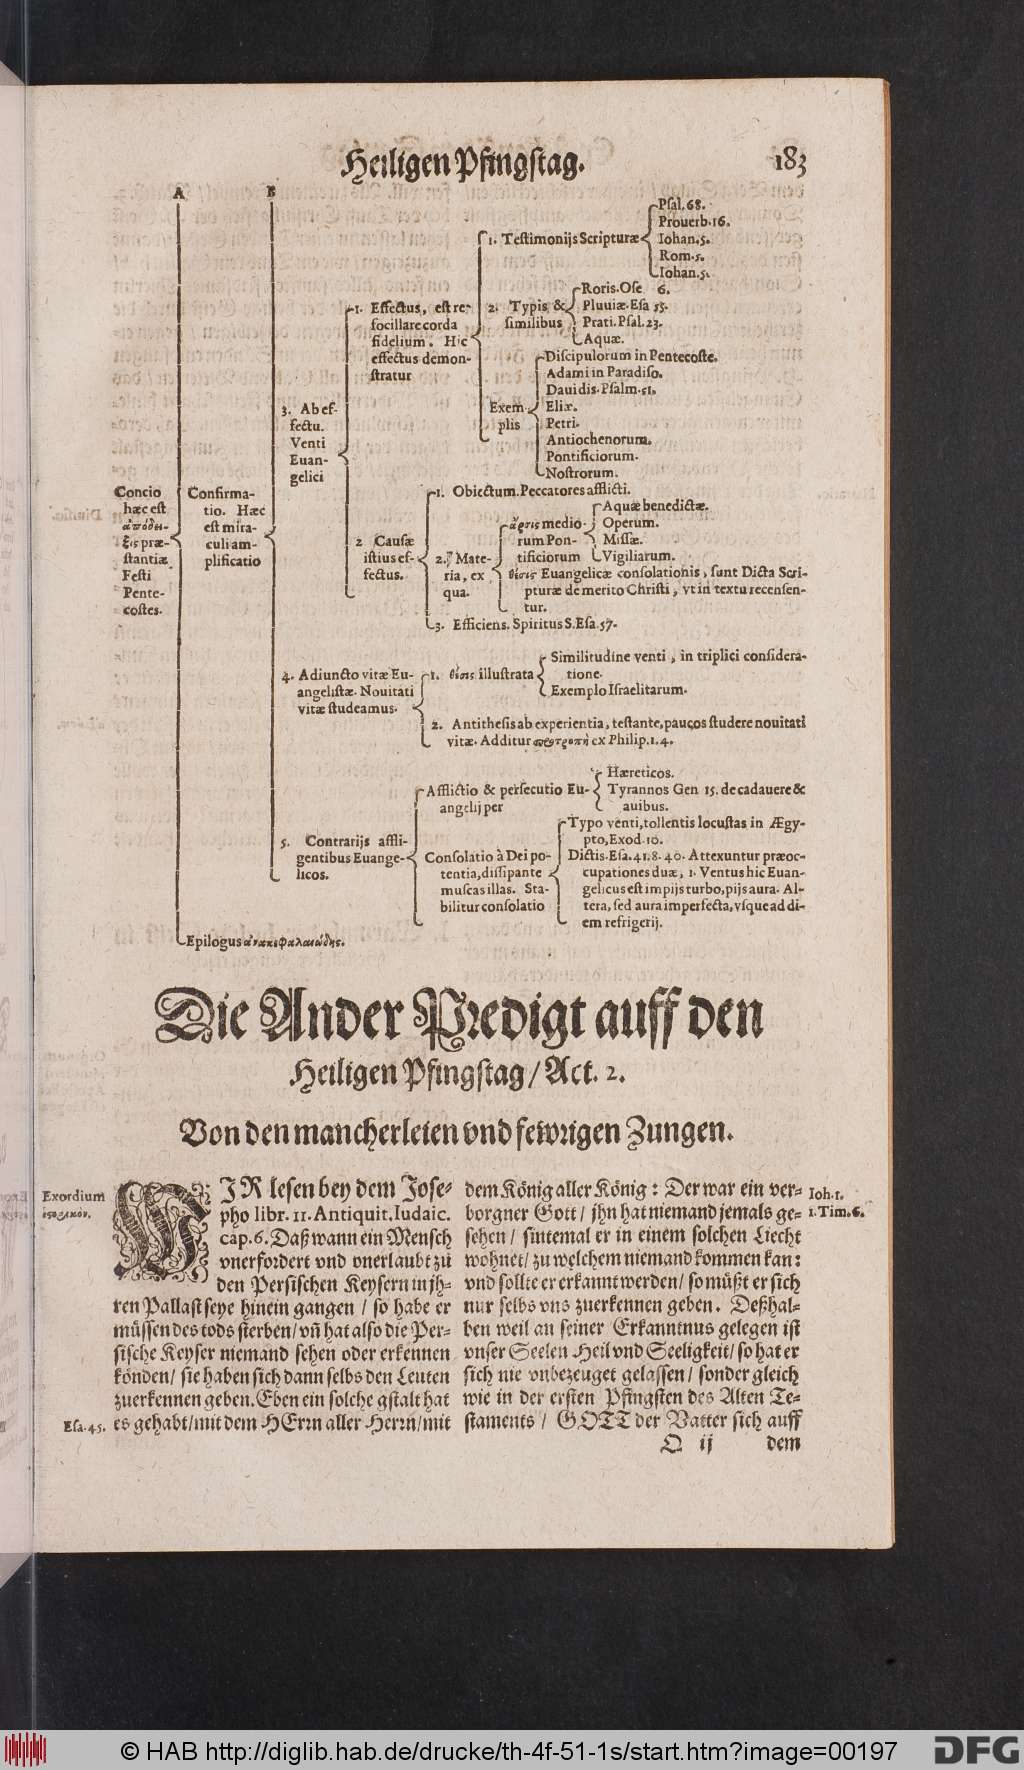 Heiligen Pfingstag.
183
A
B
Concio
hæc est
ἀπόδει-
ξις præ-
stantiæ
Festi
Pente-
costes.
Confirma-
tio. Hæc
est mira-
culi am-
plificatio
3. Ab ef-
fectu.
Venti
Euan-
gelici
1. Effectus, est re-
focillare corda
fidelium. Hic
effectus demon-
stratur
1. Testimonijs Scripturæ
Psal. 68.
Prouerb. 16.
Iohan. 5.
Rom. 5.
Iohan. 5.
2. Typis &
similibus
Roris. Ose 6.
Pluuiæ. Esa 55.
Prati. Psal. 23.
Aquæ.
Exem-
plis
Discipulorum in Pentecoste.
Adami in Paradiso.
Dauidis. Psalm. 51.
Eliæ.
Petri.
Antiochenorum.
Pontificiorum.
Nostrorum.
2 Causæ
istius ef-
fectus.
1. Obiectum. Peccatores afflicti.
2. Mate-
ria, ex
qua.
ἄρσις medio-
rum Pon-
tificiorum
Aquæ benedictæ.
Operum.
Missæ.
Vigiliarum.
θέσις Euangelicæ consolationis, sunt Dicta Scri-
pturæ de merito Christi, vt in textu recensen-
tur.
3. Efficiens. Spiritus S. Esa. 57.
4. Adiuncto vitæ Eu-
angelistæ. Nouitati
vitæ studeamus.
1. θέσις illustrata
Similitudine venti, in triplici considera-
tione.
Exemplo Israelitarum.
2. Antithesis ab experientia, testante, paucos studere nouitati
vitæ. Additur προτροπὴ ex Philip. 1. 4.
5. Contrarijs affli-
gentibus Euange-
licos.
Afflictio & persecutio Eu-
angelij per
Hæreticos.
Tyrannos Gen 15. de cadauere &
auibus.
Consolatio à Dei po-
tentia, dissipante
muscas illas. Sta-
bilitur consolatio
Typo venti, tollentis locustas in Ægy-
pto, Exod. 10.
Dictis. Esa. 41. 8. 40. Attexuntur præoc-
cupationes duæ, 1. Ventus hic Euan-
gelicus est impijs turbo, pijs aura. Al-
tera, sed aura imperfecta, vsque ad di-
em refrigerij.
Epilogus ἀνακεφαλαιώδης.
Die Ander Predigt auff den
Heiligen Pfingstag / Act. 2.
Von den mancherleien vnd fewrigen Zungen.
Exordium
WIR lesen bey dem Jose-
pho libr. 11. Antiquit. Iudaic.
cap. 6. Daß wann ein Mensch
vnerfordert vnd vnerlaubt zu
den Persischen Keysern in jh-
ren Pallast seye hinein gangen / so habe er
müssen des tods sterben / vñ hat also die Per-
sische Keyser niemand sehen oder erkennen
könden / sie haben sich dann selbs den Leuten
zuerkennen geben. Eben ein solche gstalt hat
Esa. 45.
es gehabt / mit dem HErrn aller Herrn / mit
dem König aller König : Der war ein ver-
Ioh. 1.
borgner Gott / jhn hat niemand jemals ge-
1. Tim. 6.
sehen / sintemal er in einem solchen Liecht
wohnet / zu welchem niemand kommen kan :
vnd sollte er erkannt werden / so müßt er sich
nur selbs vns zuerkennen geben. Deßhal-
ben weil an seiner Erkanntnus gelegen ist
vnser Seelen Heil vnd Seeligkeit / so hat er
sich nie vnbezeuget gelassen / sonder gleich
wie in der ersten Pfingsten des Alten Te-
staments / GOTT der Vatter sich auff
Q ij
dem
© HAB http://diglib.hab.de/drucke/th-4f-51-1s/start.htm?image=00197
DFG